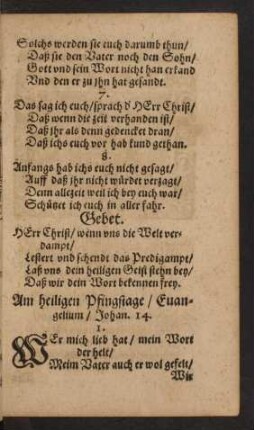 Solchs werden sie euch darumb thun/
Daß sie den Vater noch den Sohn/
Gott vnd sein Wort nicht han erkand
Vnd den er zu jhn hat gesandt.
7.
Das sag ich euch/sprach d' HErr Christ/
Daß wenn die zeit verhanden ist/
Daß jhr als denn gedencket dran/
Daß ichs euch vor hab kund gethan.
8.
Anfangs hab ichs euch nicht gesagt/
Auff daß jhr nicht würdet verzagt/
Denn allezeit weil ich bey euch war/
Schützet ich euch in aller fahr.
Gebet.
HErr Christ/ wenn vns die Welt ver-
dampt/
Lestert vnd schendt das Predigampt/
Laß vns dein heiligen Geist stehn bey/
Daß wir dein Wort bekennen frey.
Am heiligen Pfingstage / Euan-
gelium / Johan. 14.
1.
WEr mich lieb hat / mein Wort
der helt/
Meim Vater auch er wol gefelt/
Wir